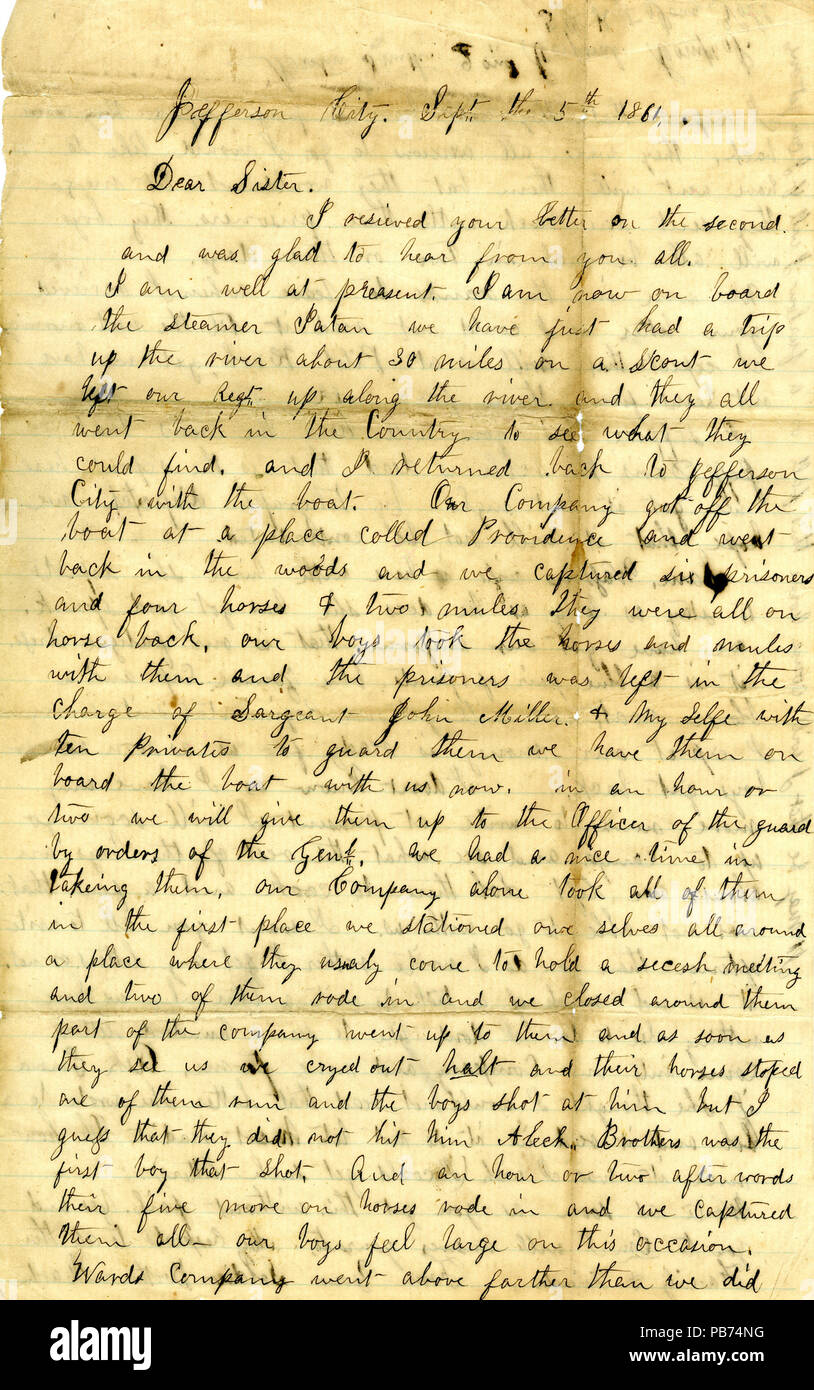 Jefferson City. Sept. the 5th 1861.
Dear Sister.
I resieved your letter on the second.
and was glad to hear from you all.
I am well at preasent. I am now on board
the steamer Iatan we have just had a trip
up the river about 30 miles on a scout we
left our Regt. up along the river and they all
went back in the Country to see what they
could find. and I returned back to Jefferson
City with the boat. Our Company got off the
boat at a place called Providence and went
back in the woods and we captured six prisoners
and four horses & two mules they were all on
horse back. our boys took the horses and mules
with them and the prisoners was left in the
charge of Sargeant John Miller. & My Selfe with
ten Privates to guard them we have them on
board the boat with us now. in an hour or
two we will give them up to the Officer of the guard
by orders of the Genl. we had a nice time in
takeing them, our Company alone took all of them
in the first place we stationed owe selves all around
a place where they usualy come to hold a secesh meeting
and two of them rode in and we closed around them
part of the company went up to them and as soon as
they see us we cryed out halt and their horses stoped
one of them run and the boys shot at him but I
guess that they did not hit him Aleck. Brothers was the
first boy that shot. And an hour or two after words
their five more on horses rode in and we captured
them all— our boys feel large on this occasion.
Wards Company went above farther than we did
alamy
PB74NG
Image ID: PB74NG
www.alamy.com